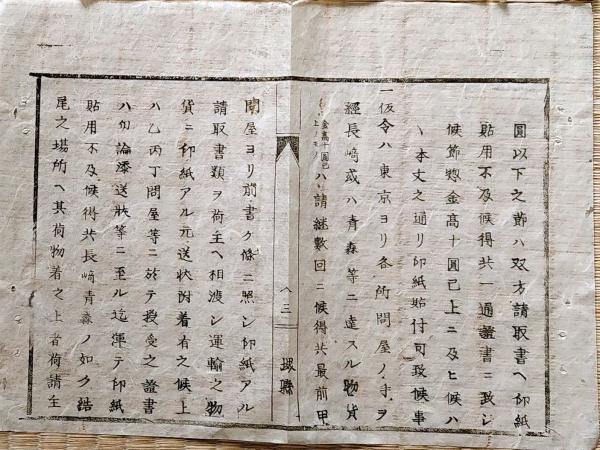 圓以下之節ハ双方請取書ヘ印紙
貼用不及候得共一通證書ニ致シ
候節惣金高十圓已上ニ及ヒ候ハ
ヽ本文之通リ印紙貼付可致候事
一仮令ハ東京ヨリ各所問屋ノ手ヲ
經長﨑或ハ青森等ニ達スル物貨
金高十圓已
上ノモノ
ハ請継數回ニ候得共最前甲
八三
環縣
問屋ヨリ前書ク條ニ照シ印紙アル
請取書類ヲ荷主ヘ相渡シ運輸之物
貨ニ印紙アル元送状附着有之候上
ハ乙丙丁問屋等ニ於テ授受之證書
ハ勿論添送状等ニ至ル迄渾テ印紙
貼用不及候得共長﨑青森ノ如ク結
尾之場所ヘ其荷物着之上者荷請主